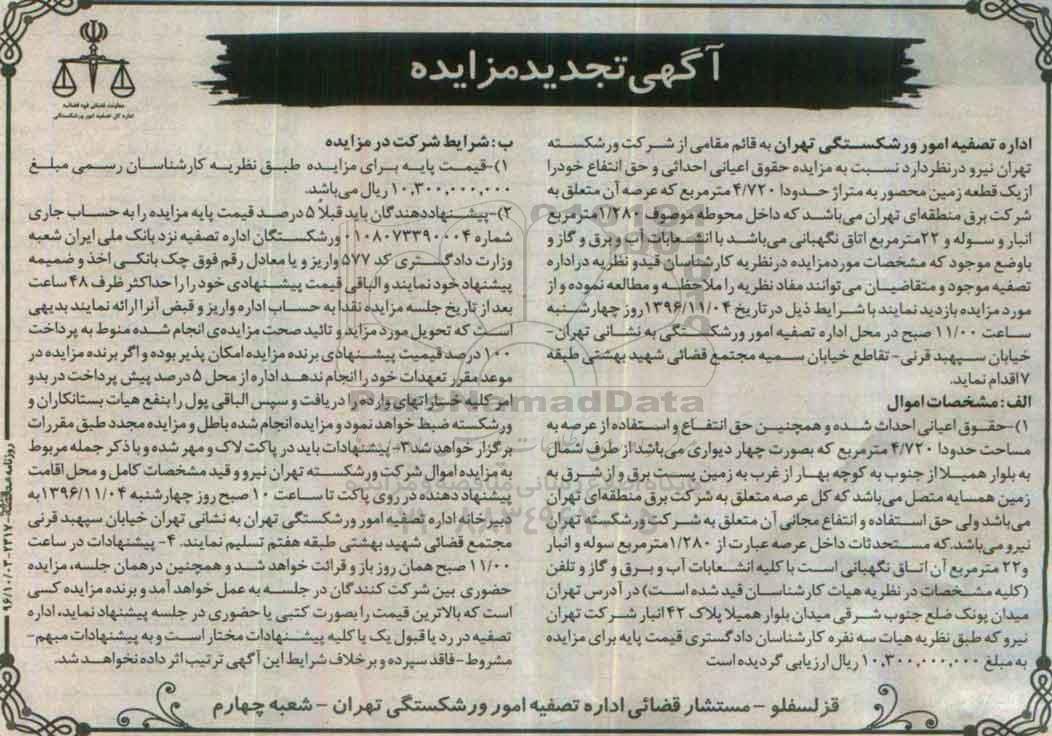 آگهی تجدید مزایده
معاونت قضائی قوه قضائیه
اداره کل تصفیه امور ورشکستگی
اداره تصفیه امور ورشکستگی تهران به قائم مقامی از شرکت ورشکسته
تهران نیرو در نظر دارد نسبت به مزایده حقوق اعیانی احداثی و حق انتفاع خود را
از یک قطعه زمین محصور به متراژ حدودا ۴/۷۲۰ مترمربع که عرصه آن متعلق به
شرکت برق منطقه‌ای تهران می‌باشد که داخل محوطه موصوف ۱/۲۸۰ مترمربع
انبار و سوله و ۲۲ مترمربع اتاق نگهبانی می‌باشد با انشعابات آب و برق و گاز و
باوضع موجود که مشخصات مورد مزایده در نظریه کارشناسان قید و نظریه در اداره
تصفیه موجود و متقاضیان می‌توانند مفاد نظریه را ملاحظه و مطالعه نموده و از
مورد مزایده بازدید نمایند با شرایط ذیل در تاریخ ۱۳۹۶/۱۱/۰۴ روز چهارشنبه
ساعت ۱۱/۰۰ صبح در محل اداره تصفیه امور ورشکستگی به نشانی تهران-
خیابان سپهبد قرنی- تقاطع خیابان سمیه مجتمع قضائی شهید بهشتی طبقه
۷ اقدام نماید.
الف: مشخصات اموال
۱)-حقوق اعیانی احداث شده و همچنین حق انتفاع و استفاده از عرصه به
مساحت حدودا ۴/۷۲۰ مترمربع که بصورت چهار دیواری می‌باشد از طرف شمال
به بلوار همیلا از جنوب به کوچه بهار از غرب به زمین پست برق و از شرق به
زمین همسایه متصل می‌باشد که کل عرصه متعلق به شرکت برق منطقه‌ای تهران
می‌باشد ولی حق استفاده و انتفاع مجانی آن متعلق به شرکت ورشکسته تهران
نیرو می‌باشد. که مستحدثات داخل عرصه عبارت از ۱/۲۸۰ مترمربع سوله و انبار
و ۲۲ مترمربع آن اتاق نگهبانی است با کلیه انشعابات آب و برق و گاز و تلفن
(کلیه مشخصات در نظریه هیات کارشناسان قید شده است) در آدرس تهران
میدان پونک ضلع جنوب شرقی میدان بلوار همیلا پلاک ۴۲ انبار شرکت تهران
نیرو که طبق نظریه هیات سه نفره کارشناسان دادگستری قیمت پایه برای مزایده
به مبلغ ۱۰,۳۰۰,۰۰۰,۰۰۰ ریال ارزیابی گردیده است
ب: شرایط شرکت در مزایده
۱)-قیمت پایه برای مزایده طبق نظریه کارشناسان رسمی مبلغ
۱۰,۳۰۰,۰۰۰,۰۰۰ ریال می‌باشد.
۲)-پیشنهاددهندگان باید قبلاً ۵ درصد قیمت پایه مزایده را به حساب جاری
شماره ۰۱۰۸۰۷۳۳۹۰۰۰۴ ورشکستگان اداره تصفیه نزد بانک ملی ایران شعبه
وزارت دادگستری کد ۵۷۷ واریز و یا معادل رقم فوق چک بانکی اخذ و ضمیمه
پیشنهاد خود نمایند و الباقی قیمت پیشنهادی خود را را حداکثر ظرف ۴۸ ساعت
بعد از تاریخ جلسه مزایده نقدا به حساب اداره واریز و قبض آنرا ارائه نمایند بدیهی
است که تحویل مورد مزاید و تائید صحت مزایده‌ی انجام شده منوط به پرداخت
۱۰۰ درصد قیمیت پیشنهادی برنده مزایده امکان پذیر بوده و اگر برنده مزایده در
موعد مقرر تعهدات خود را انجام ندهد اداره از محل ۵ درصد پیش پرداخت در بدو
امر کلیه خساراتهای وارده را دریافت و سپس الباقی پول را بنفع هیات بستانکاران و
ورشکسته ضبط خواهد نمود و مزایده انجام شده باطل و مزایده مجدد طبق مقررات
برگزار خواهد شد ۳- پیشنهادات باید در پاکت لاک و مهر شده و با ذکر جمله مربوط
به مزایده اموال شرکت ورشکسته تهران نیرو و قید مشخصات کامل و محل اقامت
پیشنهاد دهنده در روی پاکت تا ساعت ۱۰ صبح روز چهارشنبه ۱۳۹۶/۱۱/۰۴ به
دبیرخانه اداره تصفیه امور ورشکستگی تهران به نشانی تهران خیابان سپهبد قرنی
مجتمع قضائی شهید بهشتی طبقه هفتم تسلیم نمایند. ۴- پیشنهادات در ساعت
۱۱/۰۰ صبح همان روز باز و قرائت خواهد شد و همچنین در همان جلسه، مزایده
حضوری بین شرکت کنندگان در جلسه به عمل خواهد آمد و برنده مزایده کسی
است که بالاترین قیمت را بصورت کتبی یا حضوری در جلسه پیشنهاد نماید، اداره
تصفیه در رد یا قبول یک یا کلیه پیشنهادات مختار است و به پیشنهادات مبهم-
مشروط- فاقد سپرده و برخلاف شرایط این آگهی ترتیب اثر داده نخواهد شد.
قزلسفلو - مستشار قضائی اداره تصفیه امور ورشکستگی تهران - شعبه چهارم
ParsNamadData